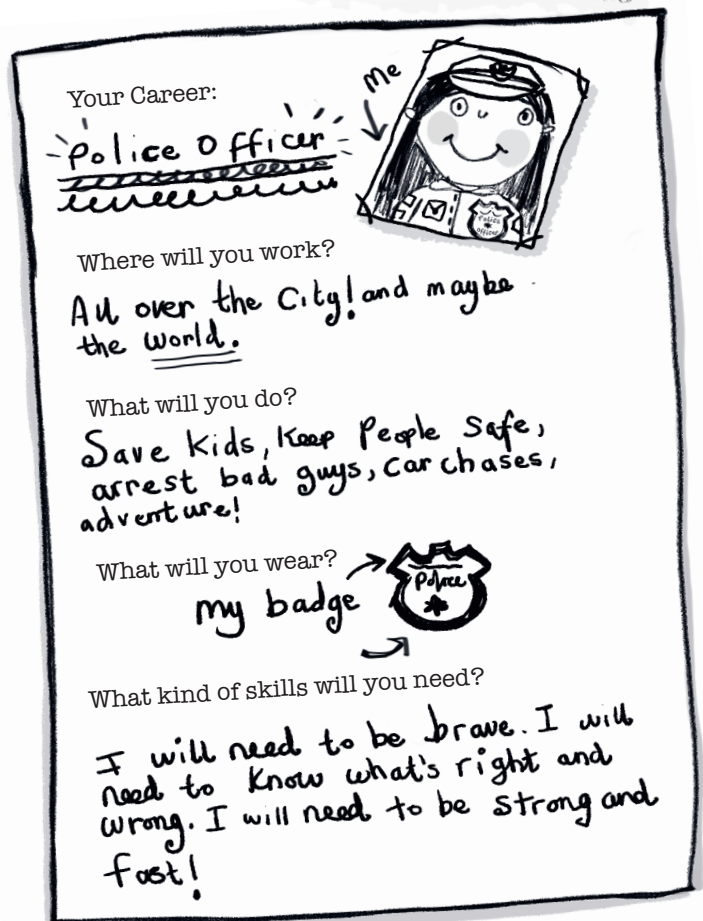 Your Career:
Me
Police Officer
Police
Officer
Where will you work?
All over the City! and maybe
the world.
What will you do?
Save kids, Keep People Safe,
arrest bad guys, car chases,
adventure!
What will you wear?
my badge
Police
What kind of skills will you need?
I will need to be brave. I will
need to know what's right and
wrong. I will need to be strong and
fast!